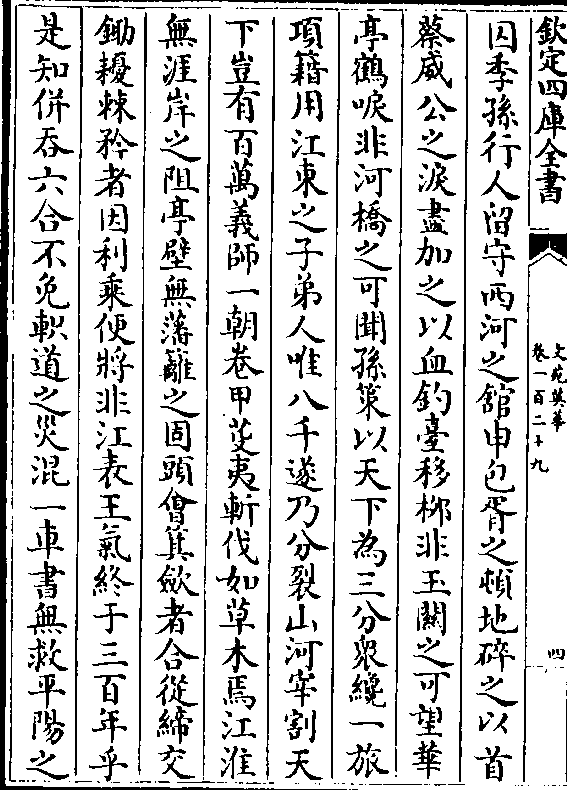 欽定四庫全書
文苑英華
卷一百二十九
四
囚季孫行人留守西河之館申包胥之頓地碎之以首
蔡威公之淚盡加之以血釣臺移桞非玉關之可望華
亭鶴唳非河橋之可聞孫䇿以天下為三分衆纔一旅
項籍用江東之子弟人唯八千遂乃分裂山河宰割天
下豈有百萬義師一朝卷甲芟夷斬伐如草木焉江淮
無涯岸之阻亭壁無藩籬之固頭㑹箕斂者合從締交
鋤耰棘矜者因利乗便將非江表王氣終于三百年乎
是知併吞六合不免軹道之災混一車書無救平陽之